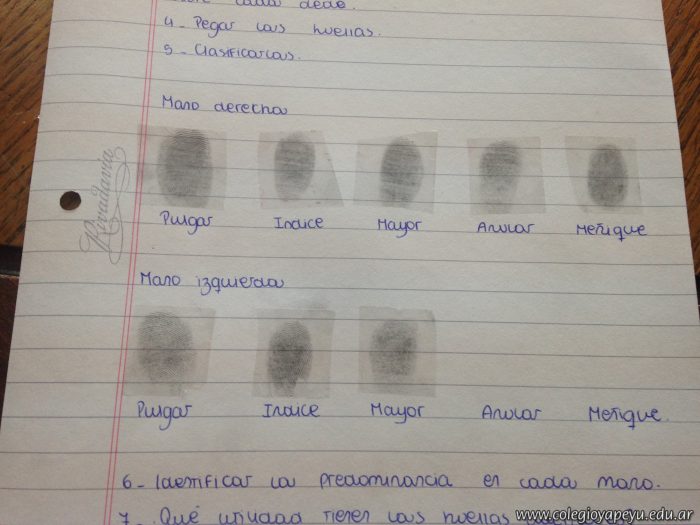 cada dedo.
4- Pegar las huellas.
5- Clasificarlas.
Mano derecha
Pulgar Indice Mayor Anular Meñique
Rivadavia
Mano izquierda
Pulgar Indice Mayor Anular Meñique.
6- Identificar la predominancia en cada mano.
7- Qué utilidad tienen las huellas
www.colegioyapeyu.edu.ar